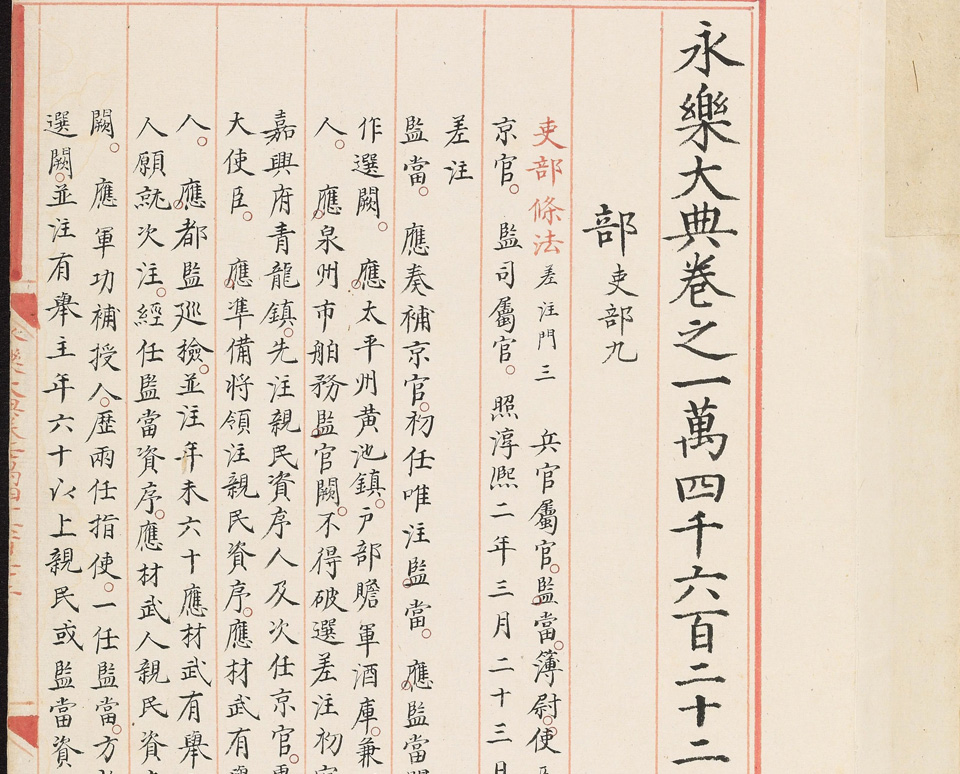 永樂大典卷之一萬四千六百二十二
部 吏部九
吏部條法 差注門三 兵官屬官。監當。簿尉。使
京官。監司屬官。照淳熙二年三月二十三日
差注
監當。應奏補京官。初任唯注監當。應監當
作選闕。應太平州黃池鎮。戶部贍軍酒庫。兼
人。應泉州市舶務監官闕。不得破選差注初
嘉興府青龍鎮。先注親民資序人及次任京官。
大使臣。應準備將領注親民資序。應材武有
人。應都監巡檢。並注年未六十應材武有舉
人願就次注。經任監當資序。應材武人親民資
闕。應軍功補授人。歷兩任指使。一任監當。方
選闕。並注有舉主年六十以上親民或監當資